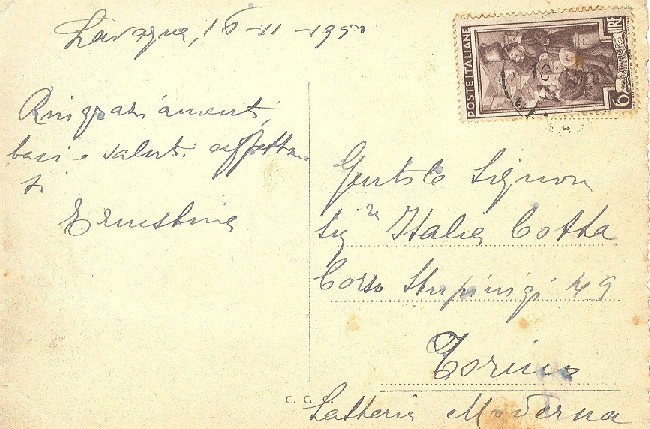 Lavagna, 16-11-1950
Ringraziamenti,
baci e saluti affettuo-
si
Ernestina
POSTE ITALIANE
LIRE 6
Gent.le Signora
Sig.ra Italia Cotta
Corso Stupinigi 49
Torino
Latteria Moderna
C. G.